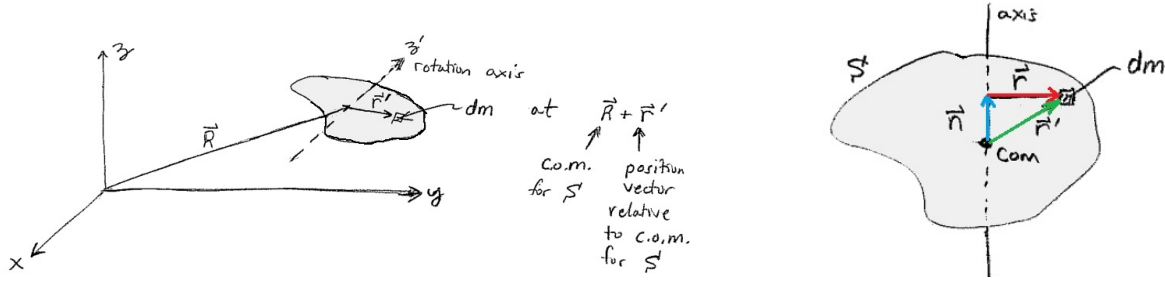 z
z'
rotation axis
r⃗'
dm at R⃗ + r⃗'
R⃗
c.o.m.
for S
position
vector
relative
to c.o.m.
for S
y
x
axis
S
dm
r⃗
n⃗
r⃗'
com